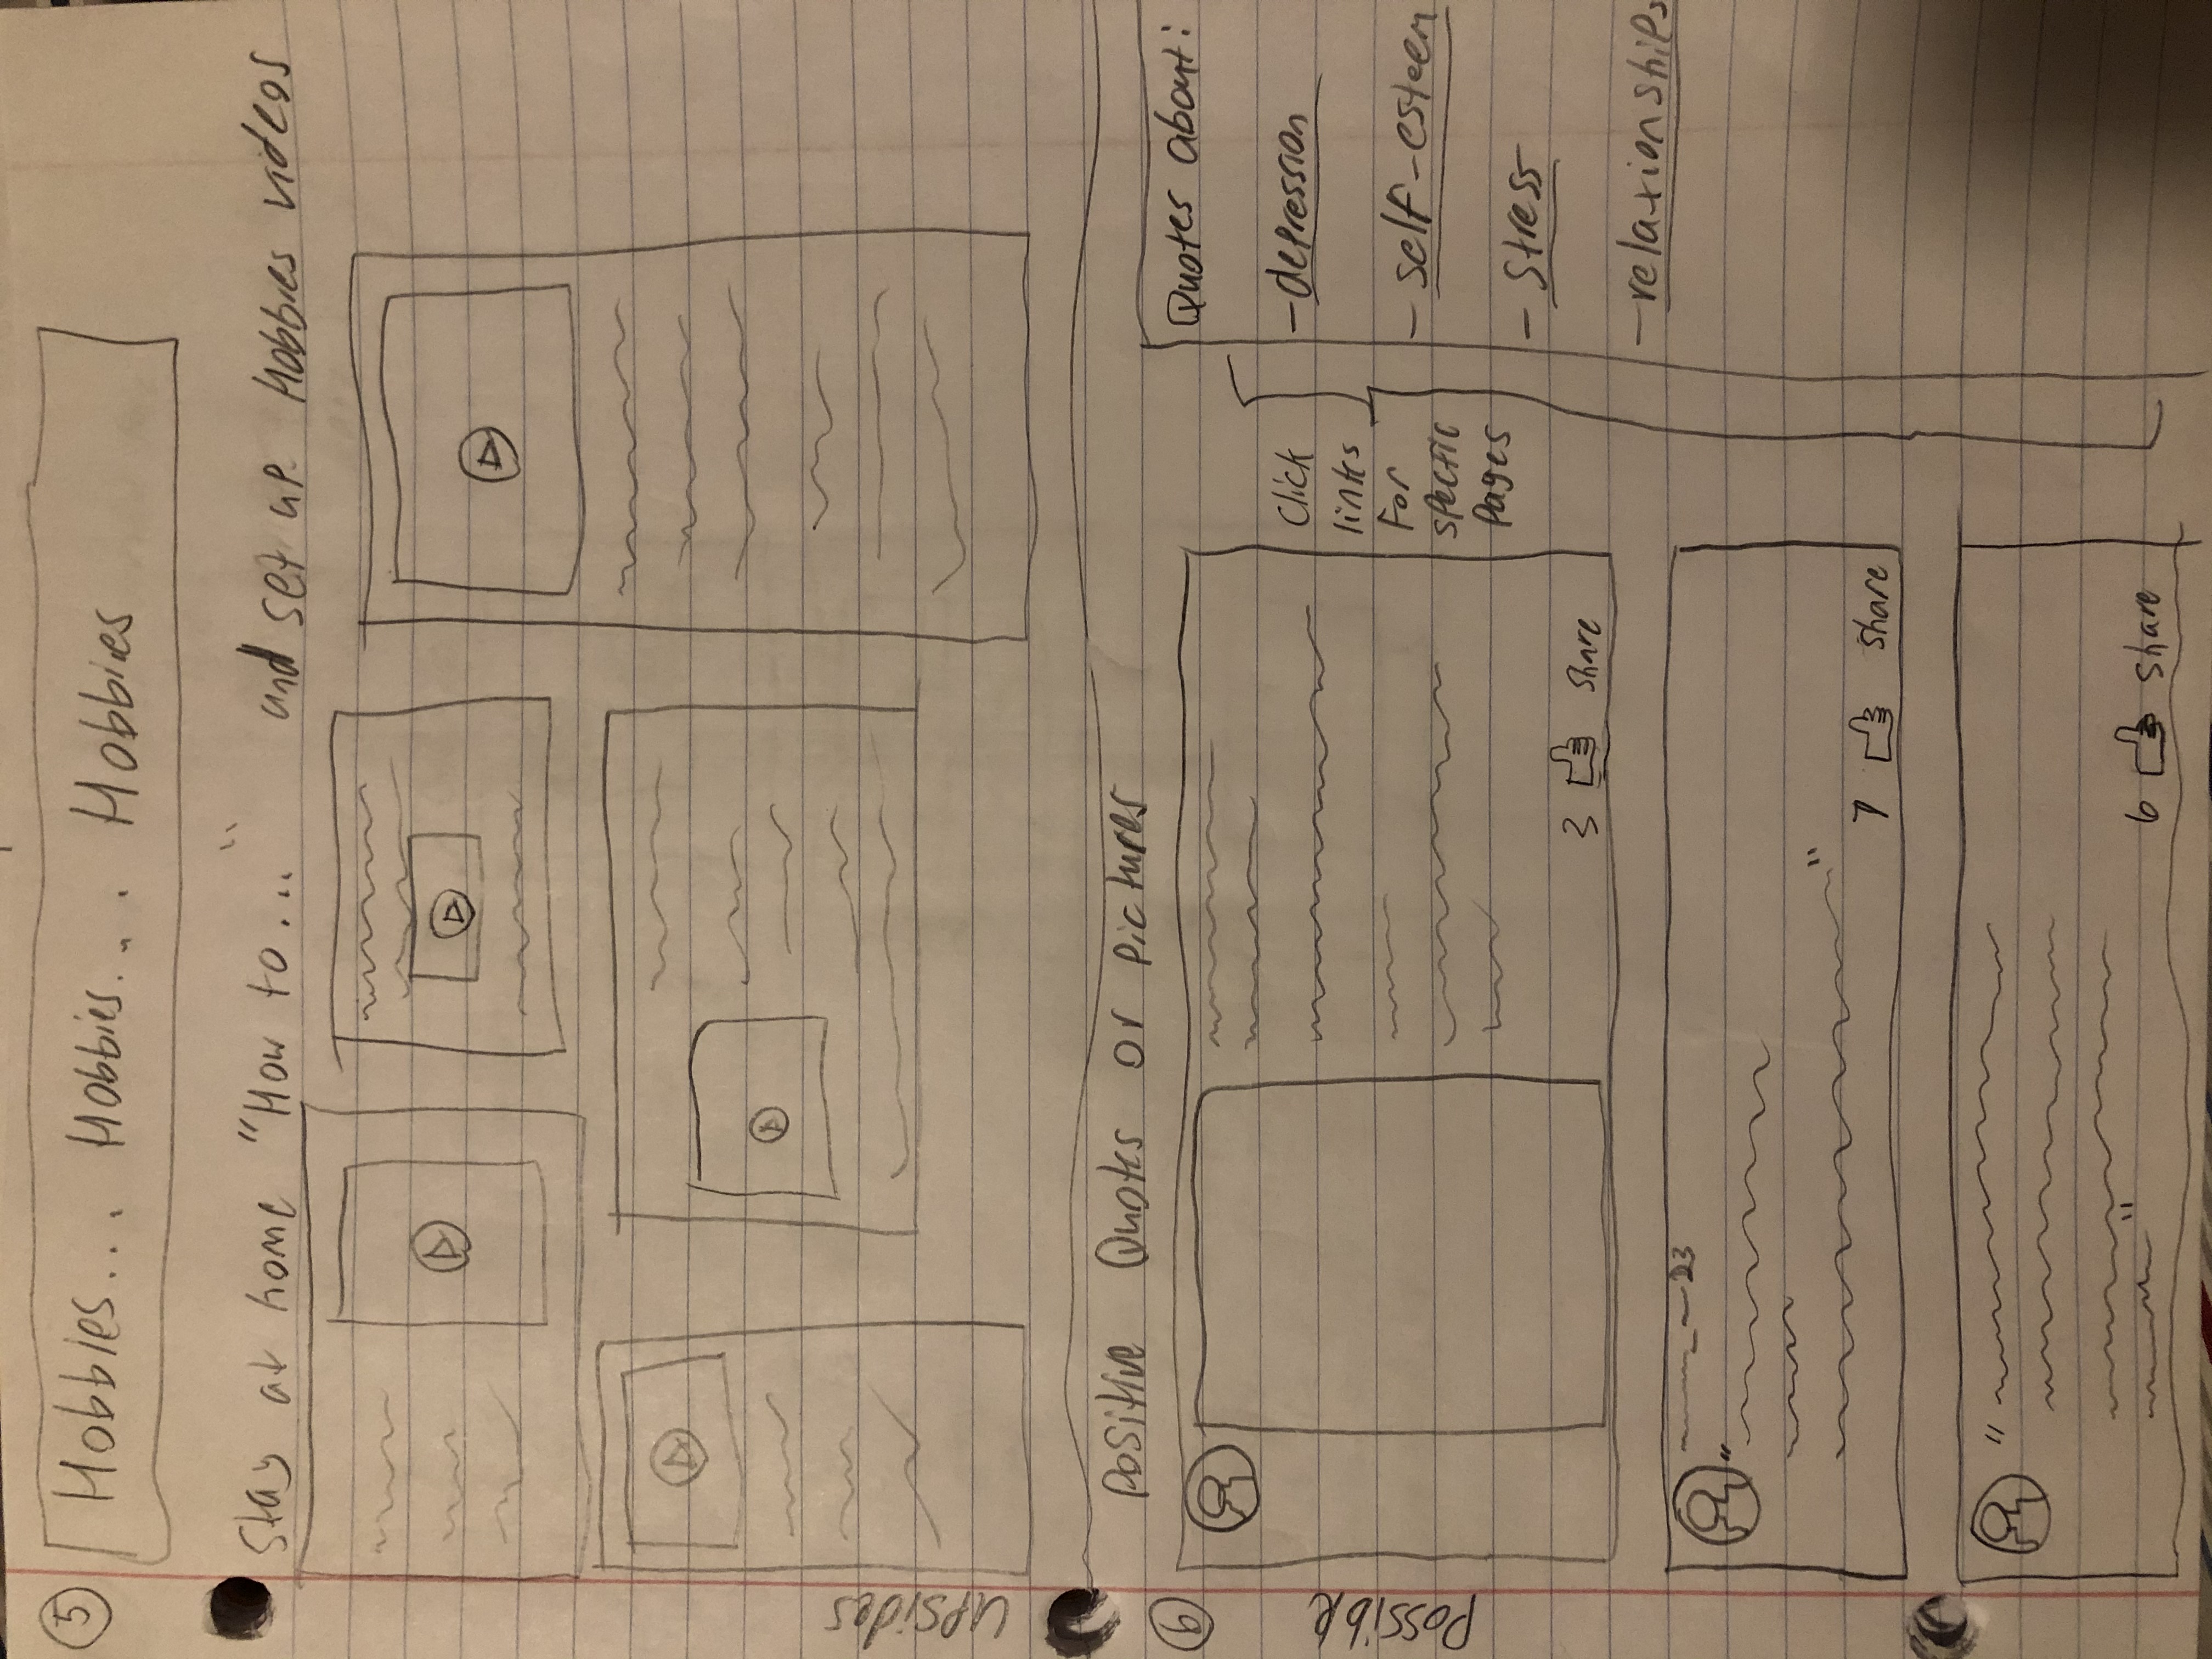 5
Hobbies... Hobbies... Hobbies
Stay at home "How to..." and set up Hobbies videos
Possible upsides
6
Positive Quotes or pictures
3 share
23
"
"
7 share
"
"
6 share
Click
links
For
specfic
Pages
Quotes about:
- depression
- self-esteem
- stress
- relaxionships